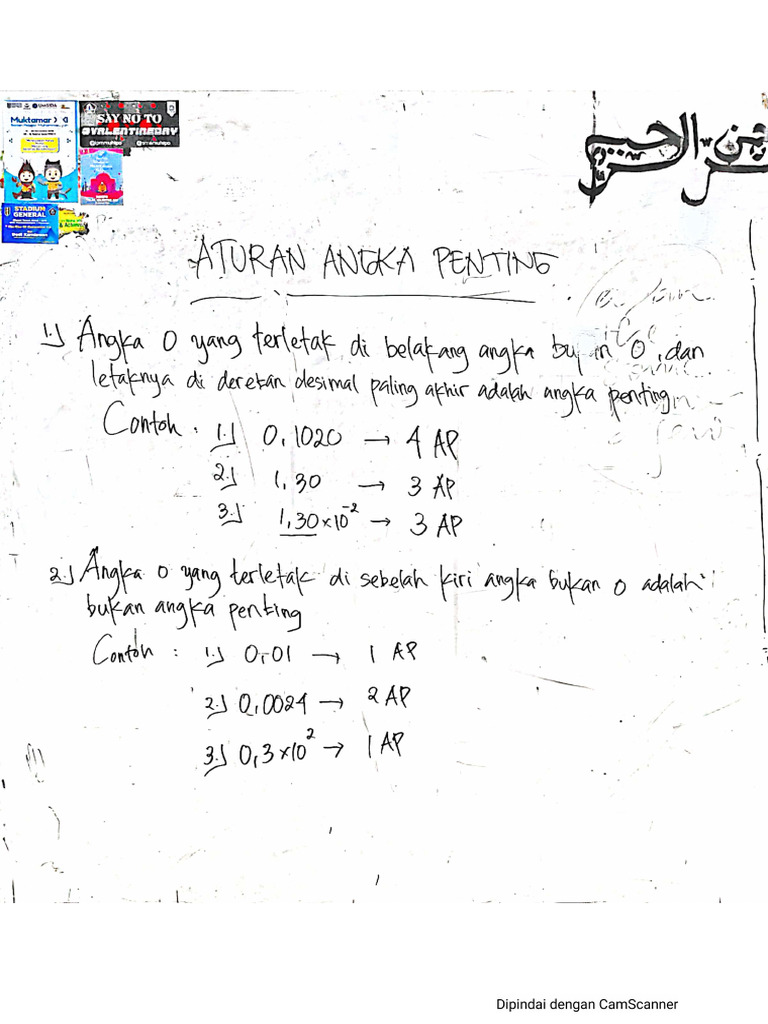 Muktamar
SAY NO TO
#VALENTINEDAY
STADIUM
GENERAL
ATURAN ANGKA PENTING
1.) Angka 0 yang terletak di belakang angka bukan 0, dan
letaknya di deretan desimal paling akhir adalah angka penting
Contoh : 1.) 0,1020 → 4 AP
2.) 1,30 → 3 AP
3.) 1,30 × 10⁻² → 3 AP
2.) Angka 0 yang terletak di sebelah kiri angka bukan 0 adalah
bukan angka penting
Contoh : 1.) 0,01 → 1 AP
2.) 0,0024 → 2 AP
3.) 0,3 × 10² → 1 AP
Dipindai dengan CamScanner